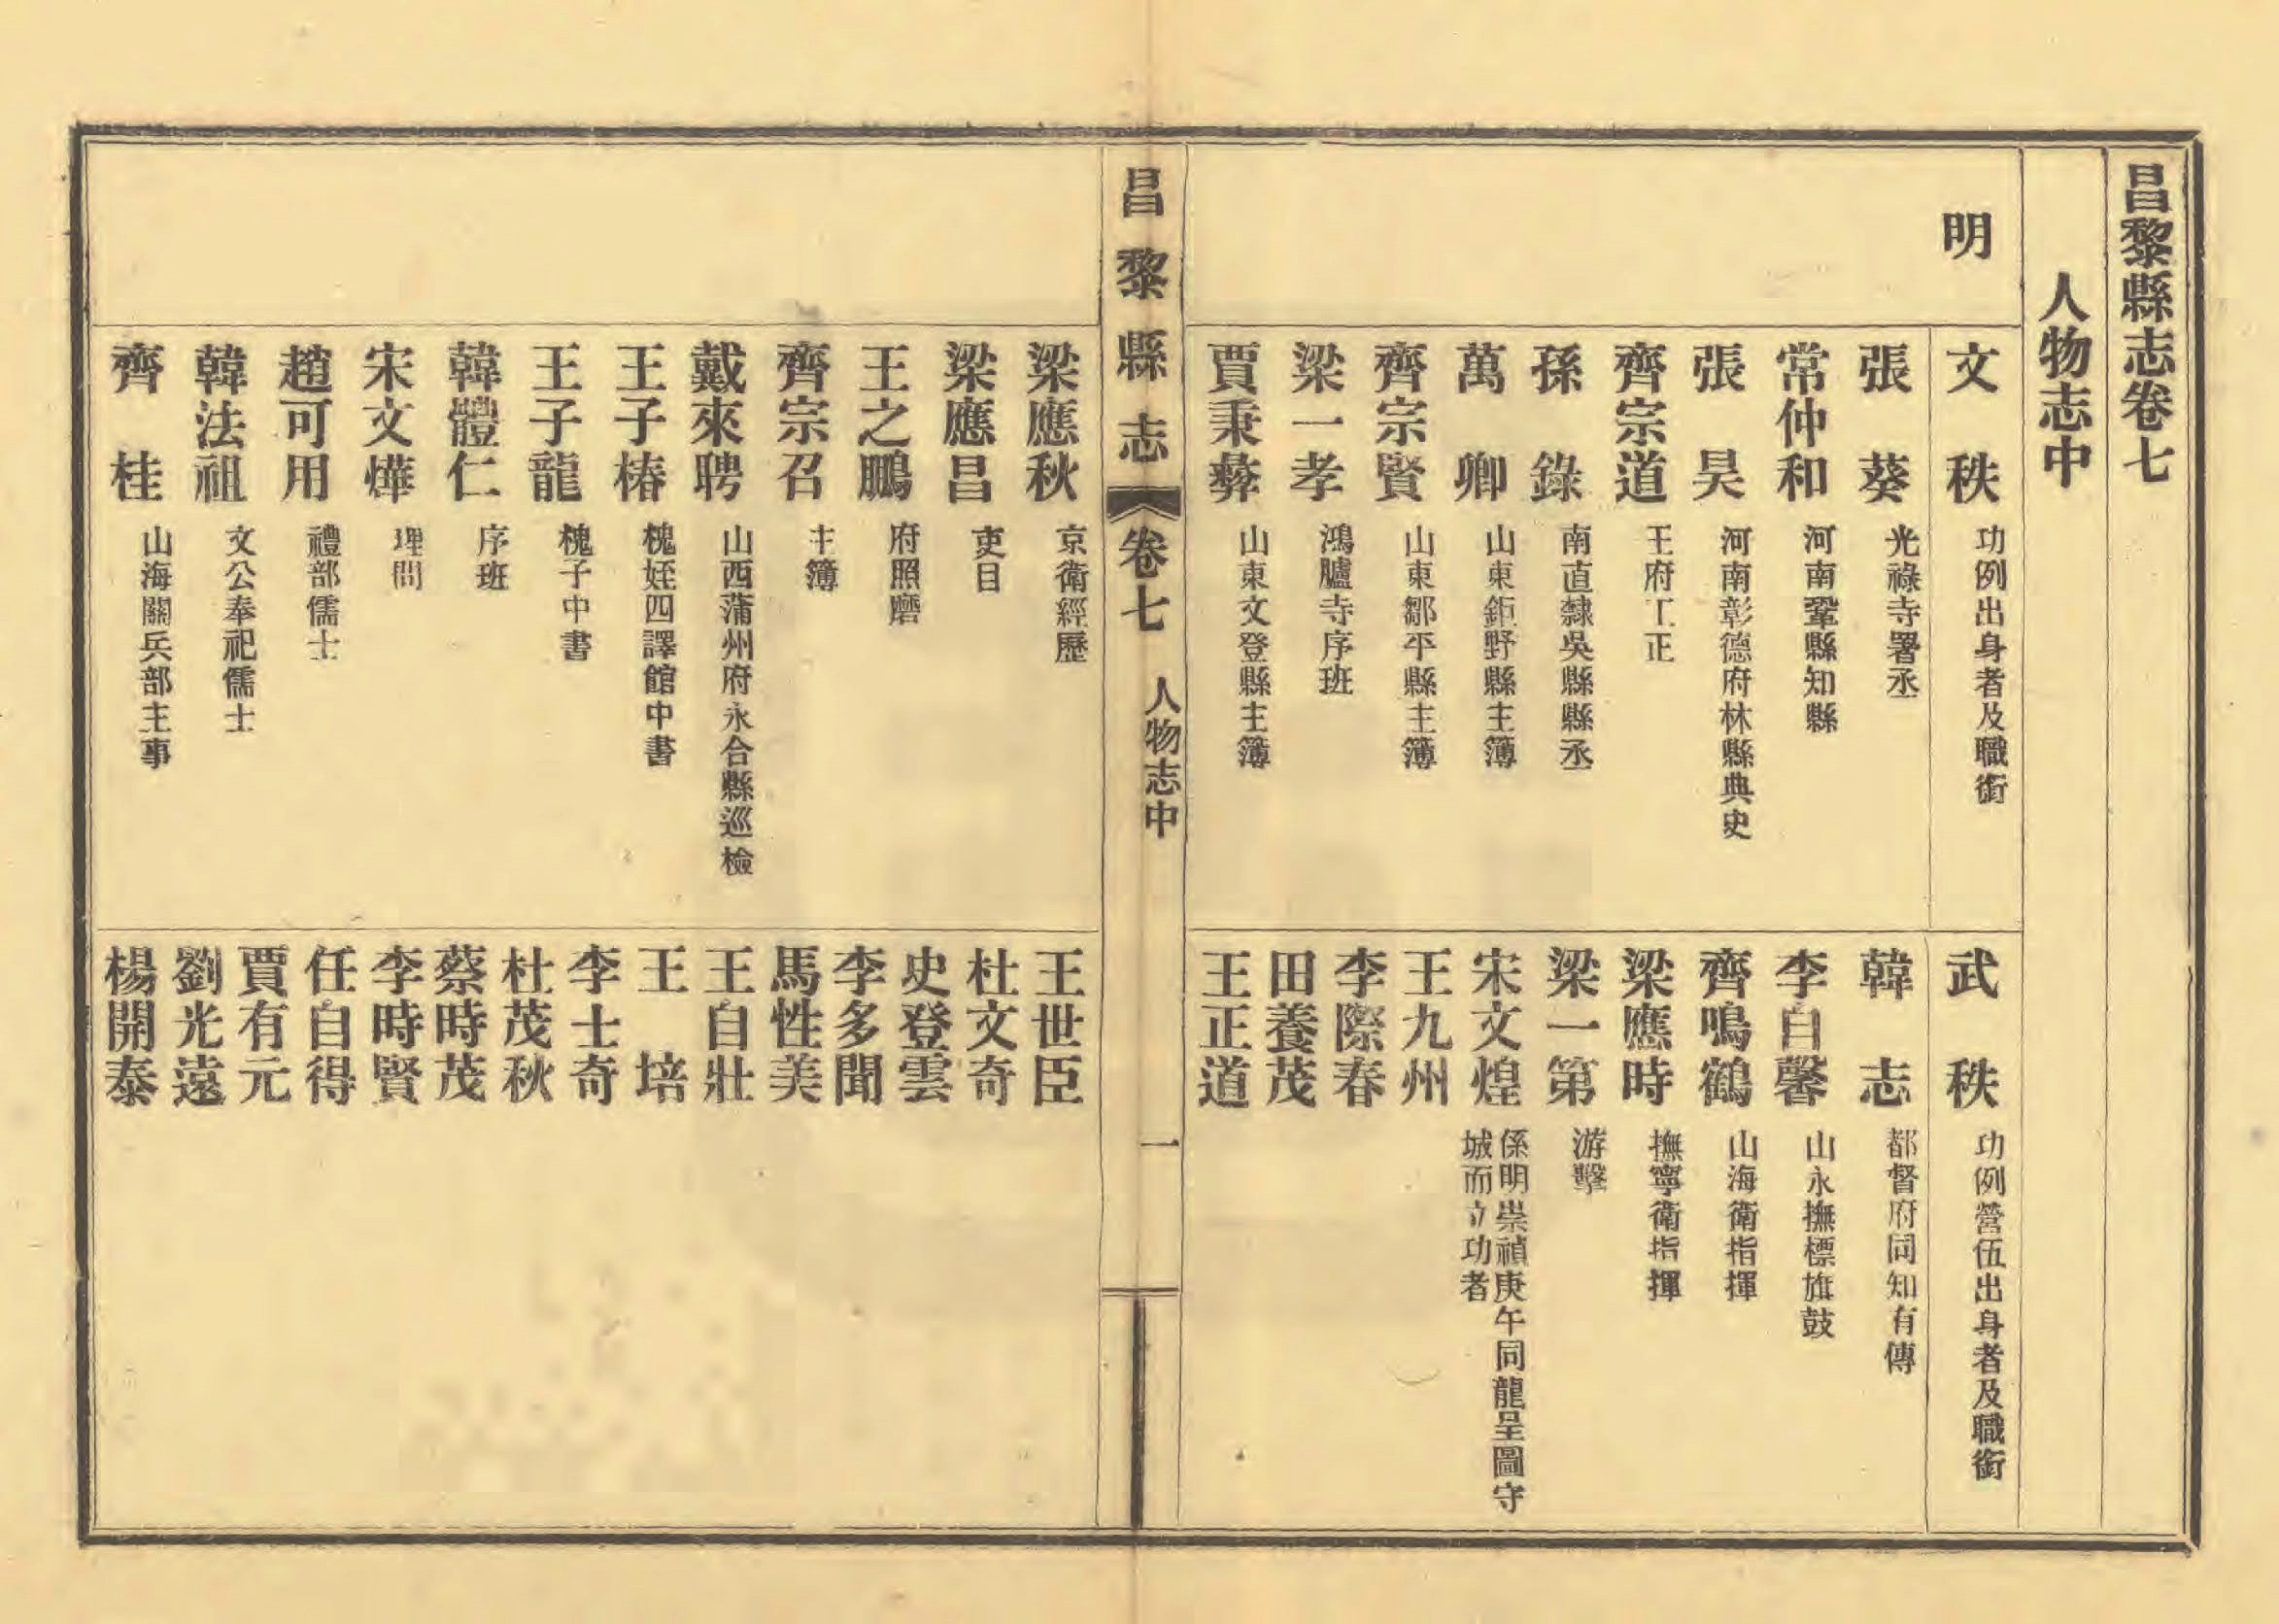 昌黎縣志卷七
人物志中
明
文秩 功例出身者及職銜
張葵 光祿寺署丞
常仲和 河南鞏縣知縣
張昊 河南彰德府林縣典史
齊宗道 王府工正
孫錄 南直隸吳縣縣丞
萬卿 山東鉅野縣主簿
齊宗賢 山東鄒平縣主簿
梁一孝 鴻臚寺序班
賈秉彝 山東文登縣主簿
武秩 功例營伍出身者及職銜
韓志 都督府同知有傳
李自馨 山永撫標旗鼓
齊鳴鶴 山海衛指揮
梁應時 撫寧衛指揮
梁一第 游擊
宋文煌 係明崇禎庚午同龍呈圖守
城而立功者
王九州
李際春
田養茂
王正道
昌黎縣志 卷七 人物志中 一
梁應秋 京衛經歷
梁應昌 吏目
王之鵬 府照磨
齊宗召 主簿
戴來聘 山西蒲州府永合縣巡檢
王子椿 槐姪四譯館中書
王子龍 槐子中書
韓體仁 序班
宋文燁 理問
趙可用 禮部儒士
韓法祖 文公奉祀儒士
齊桂 山海關兵部主事
王世臣
杜文奇
史登雲
李多聞
馬性美
王自壯
王培
李士奇
杜茂秋
蔡時茂
李時賢
任自得
賈有元
劉光遠
楊開泰